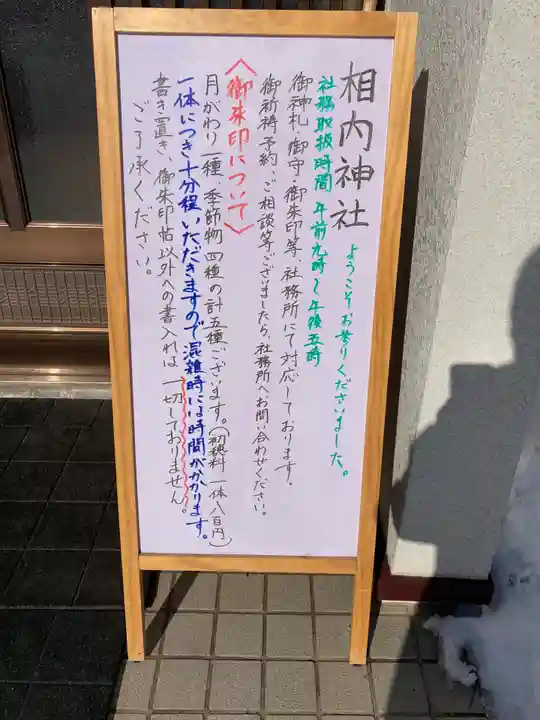 相内神社
ようこそお参りくださいました。
社務取扱時間 午前九時～午後五時
御神札、御守、御朱印等、社務所にて対応しております。
御祈祷予約、ご相談等ございましたら、社務所へお問い合わせください。
〈御朱印について〉
月がわり一種、季節物四種の計五種ございます。（初穂料 一体八百円）
一体につき十分程いただきますので混雑時には時間がかかります。
書き置き、御朱印帖以外への書入れは一切しておりません。
ご了承ください。